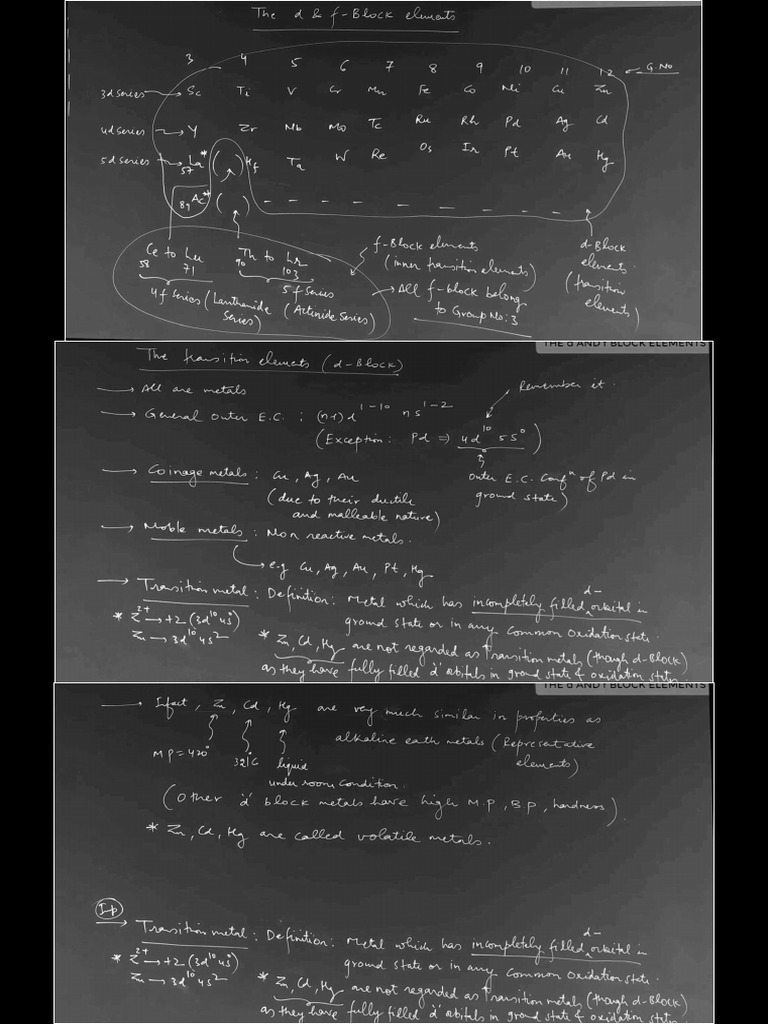 The d & f-Block elements
3 4 5 6 7 8 9 10 11 12 ← G.No
3d series → Sc Ti V Cr Mn Fe Co Ni Cu Zn
4d series → Y Zr Nb Mo Tc Ru Rh Pd Ag Cd
5d series → La* ( ) Hf Ta W Re Os Ir Pt Au Hg
57
89 Ac** ( ) – – – – – – – – –
Ce to Lu Th to Lr
58 71 90 103
4f series (Lanthanide Series)
5f series (Actinide Series)
f-Block elements
(inner transition elements)
→ All f-block belong
to Group No: 3
d-Block
elements
(transition
elements)
THE d AND f BLOCK ELEMENTS
The transition elements (d-Block)
→ All are metals
→ General outer E.C : (n-1)d¹⁻¹⁰ ns¹⁻²
Remember it.
(Exception: Pd ⇒ 4d¹⁰ 5s⁰)
outer E.C. Confⁿ of Pd in
ground state)
→ Coinage metals : Cu, Ag, Au
(due to their ductile
and malleable nature)
→ Noble metals : Non reactive metals.
→ e.g Cu, Ag, Au, Pt, Hg
→ Transition metal : Definition: Metal which has incompletely filled d- orbital in
ground state or in any Common Oxidation state.
* Z²⁺ → +2 (3d¹⁰ 4s⁰)
Zn → 3d¹⁰ 4s²
* Zn, Cd, Hg are not regarded as Transition metals (though d-Block)
as they have fully filled 'd' orbitals in ground state & oxidation state
THE d AND f BLOCK ELEMENTS
→ Infact, Zn, Cd, Hg are very much similar in properties as
alkaline eath metals (Representative
elements)
MP = 420° 321°C liquid
under room condition.
(Other 'd' block metals have high M.P, B.P, hardness).
* Zn, Cd, Hg are called volatile metals.
Imp
→ Transition metal : Definition: Metal which has incompletely filled d- orbital in
ground state or in any Common Oxidation state.
* Z²⁺ → +2 (3d¹⁰ 4s⁰)
Zn → 3d¹⁰ 4s²
* Zn, Cd, Hg are not regarded as Transition metals (though d-Block)
as they have fully filled 'd' orbitals in ground state & oxidation state